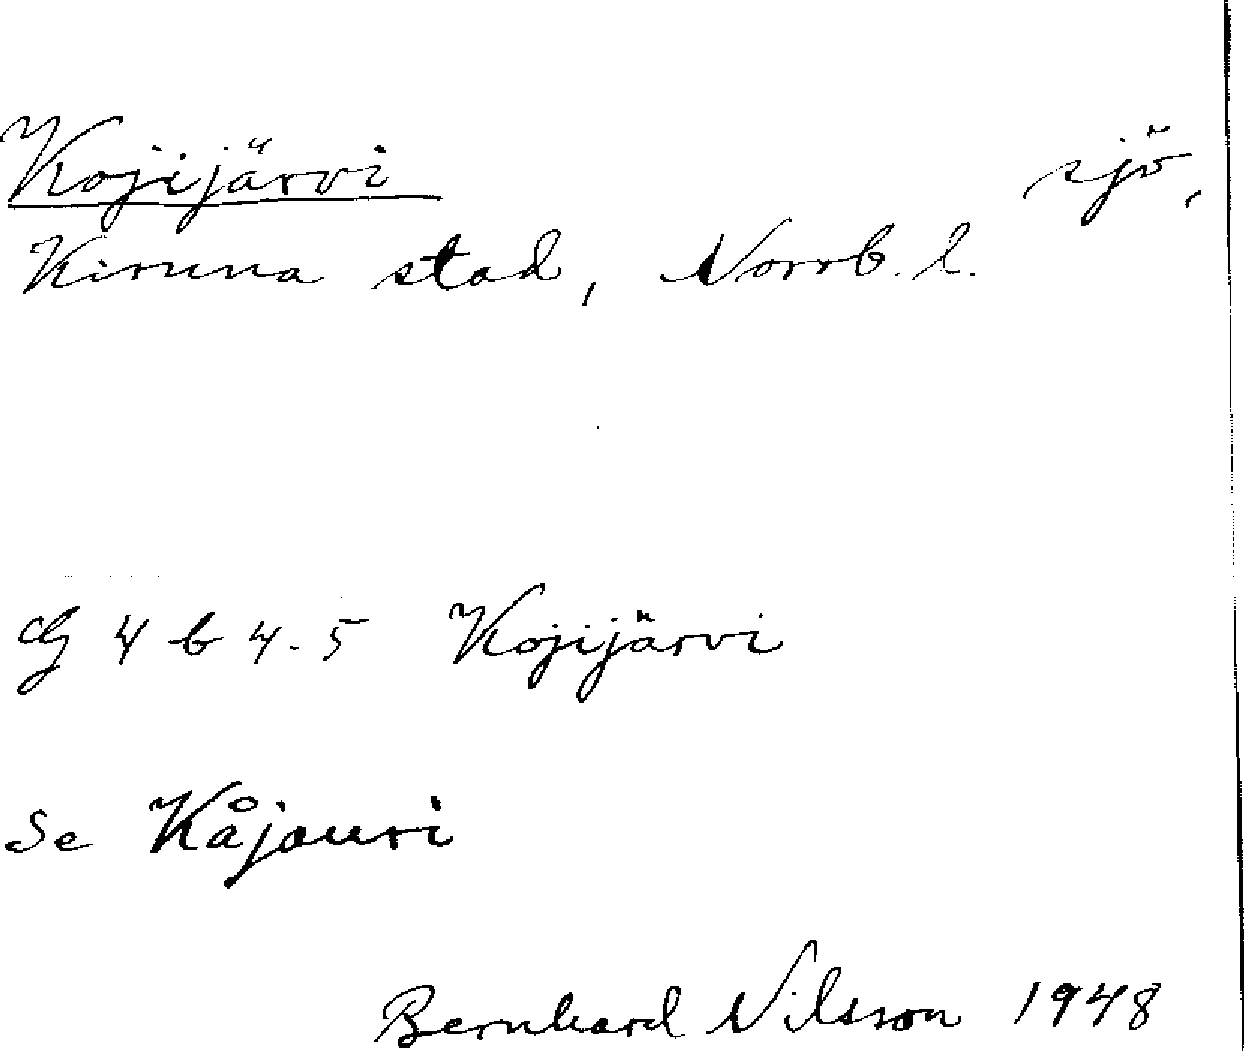 Kojijärvi sjö,
Kiruna stad, Norrb. l.
4 b 4-5 Kojijärvi
Se Kåjauri
Bernhard Nilsson 1948